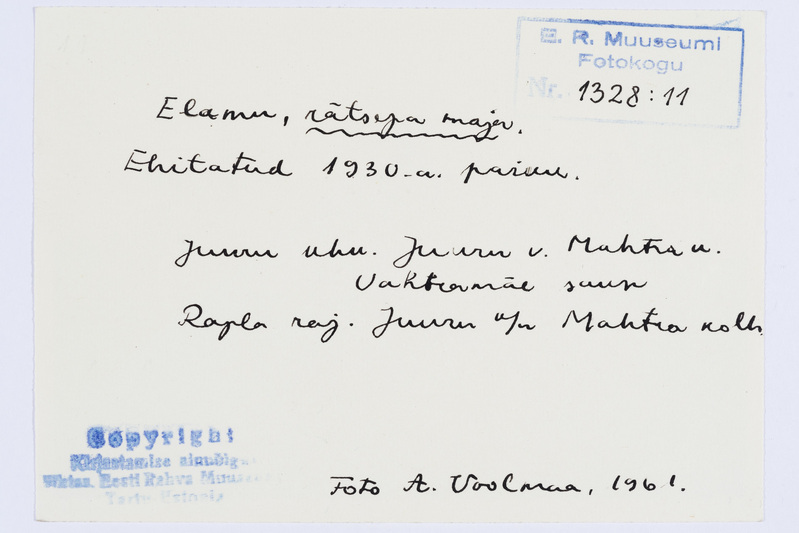 E. R. Muuseumi
Fotokogu
Nr. 1328:11
Elamu, rätsepa maja.
Ehitatud 1930-a. paiku.
Juuru khk. Juuru v. Mahtra k.
Vahtramäe saun
Rapla raj. Juuru k/n Mahtra kolh.
Copyright
Kirjastamise ainuõigus
Eesti Rahva Muuseum
Tartu, Estonia
Foto A. Voolmaa, 1961.